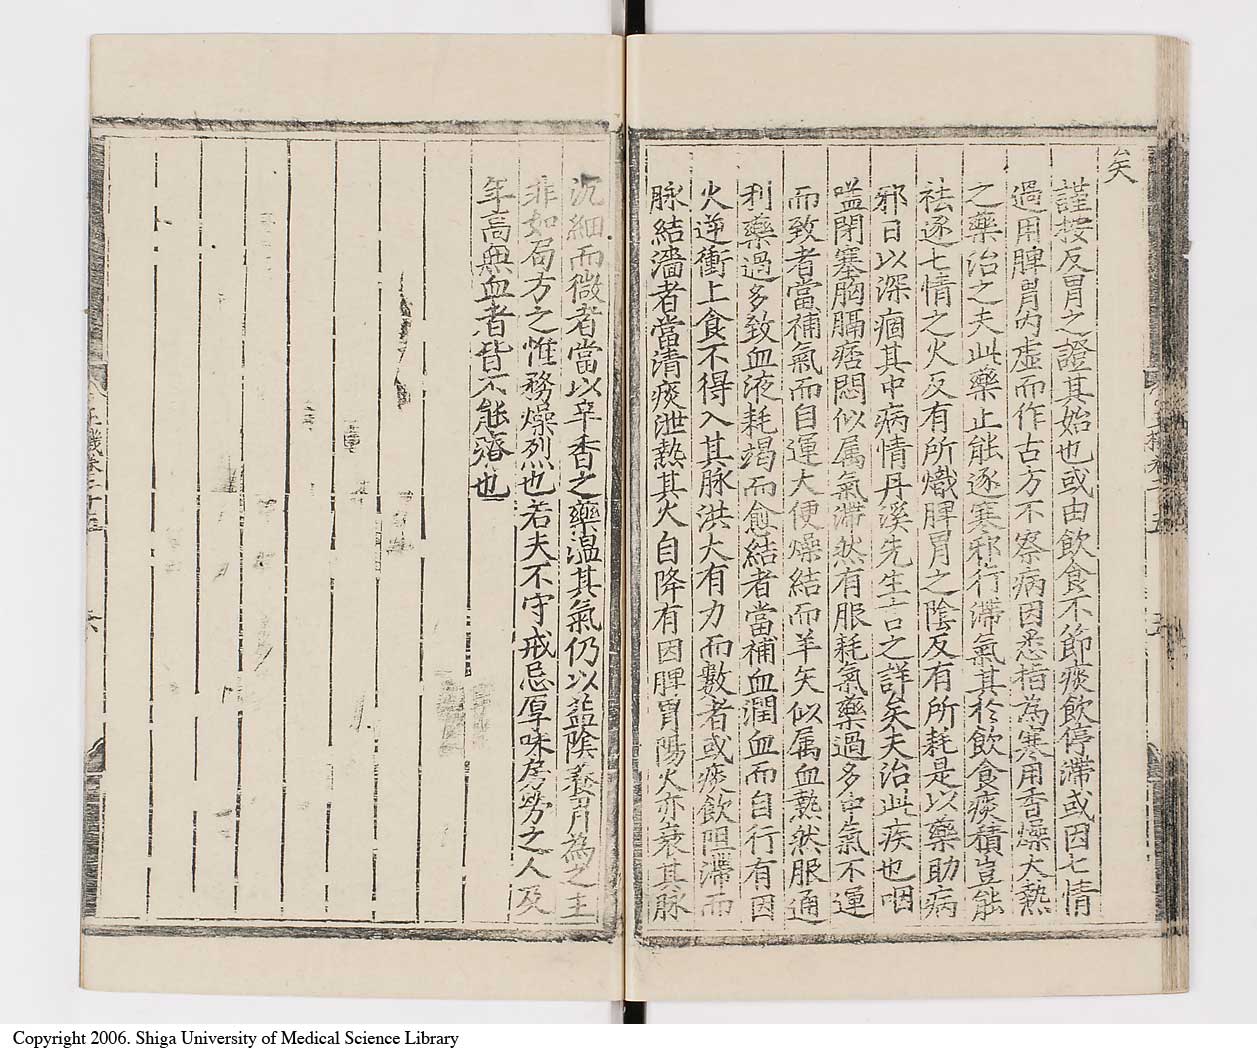 矣
謹按反胃之證其始也或由飲食不節痰飲停滯或因七情
過用脾胃內虛而作古方不察病因悉指為寒用香燥大熱
之藥治之夫此藥止能逐寒邪行滯氣其於飲食痰積豈能
祛逐七情之火反有所熾脾胃之陰反有所耗是以藥助病
邪日以深痼其中病情丹溪先生言之詳矣夫治此疾也咽
嗌閉塞胸膈痞悶似属氣滯然有服耗氣藥過多中氣不運
而致者當補氣而自運大便燥結而羊矢似属血熱然服通
利藥過多致血液耗竭而愈結者當補血潤血而自行有因
火逆衝上食不得入其脉洪大有力而數者或痰飲阻滯而
脉結濇者當清痰泄熱其火自降有因脾胃陽火亦衰其脉
沉細而微者當以辛香之藥温其氣仍以益陰養胃為之主
非如局方之惟務燥烈也若夫不守戒忌厚味房勞之人及
年高無血者皆不能濟也
玉機卷二十五
六
Copyright 2006. Shiga University of Medical Science Library